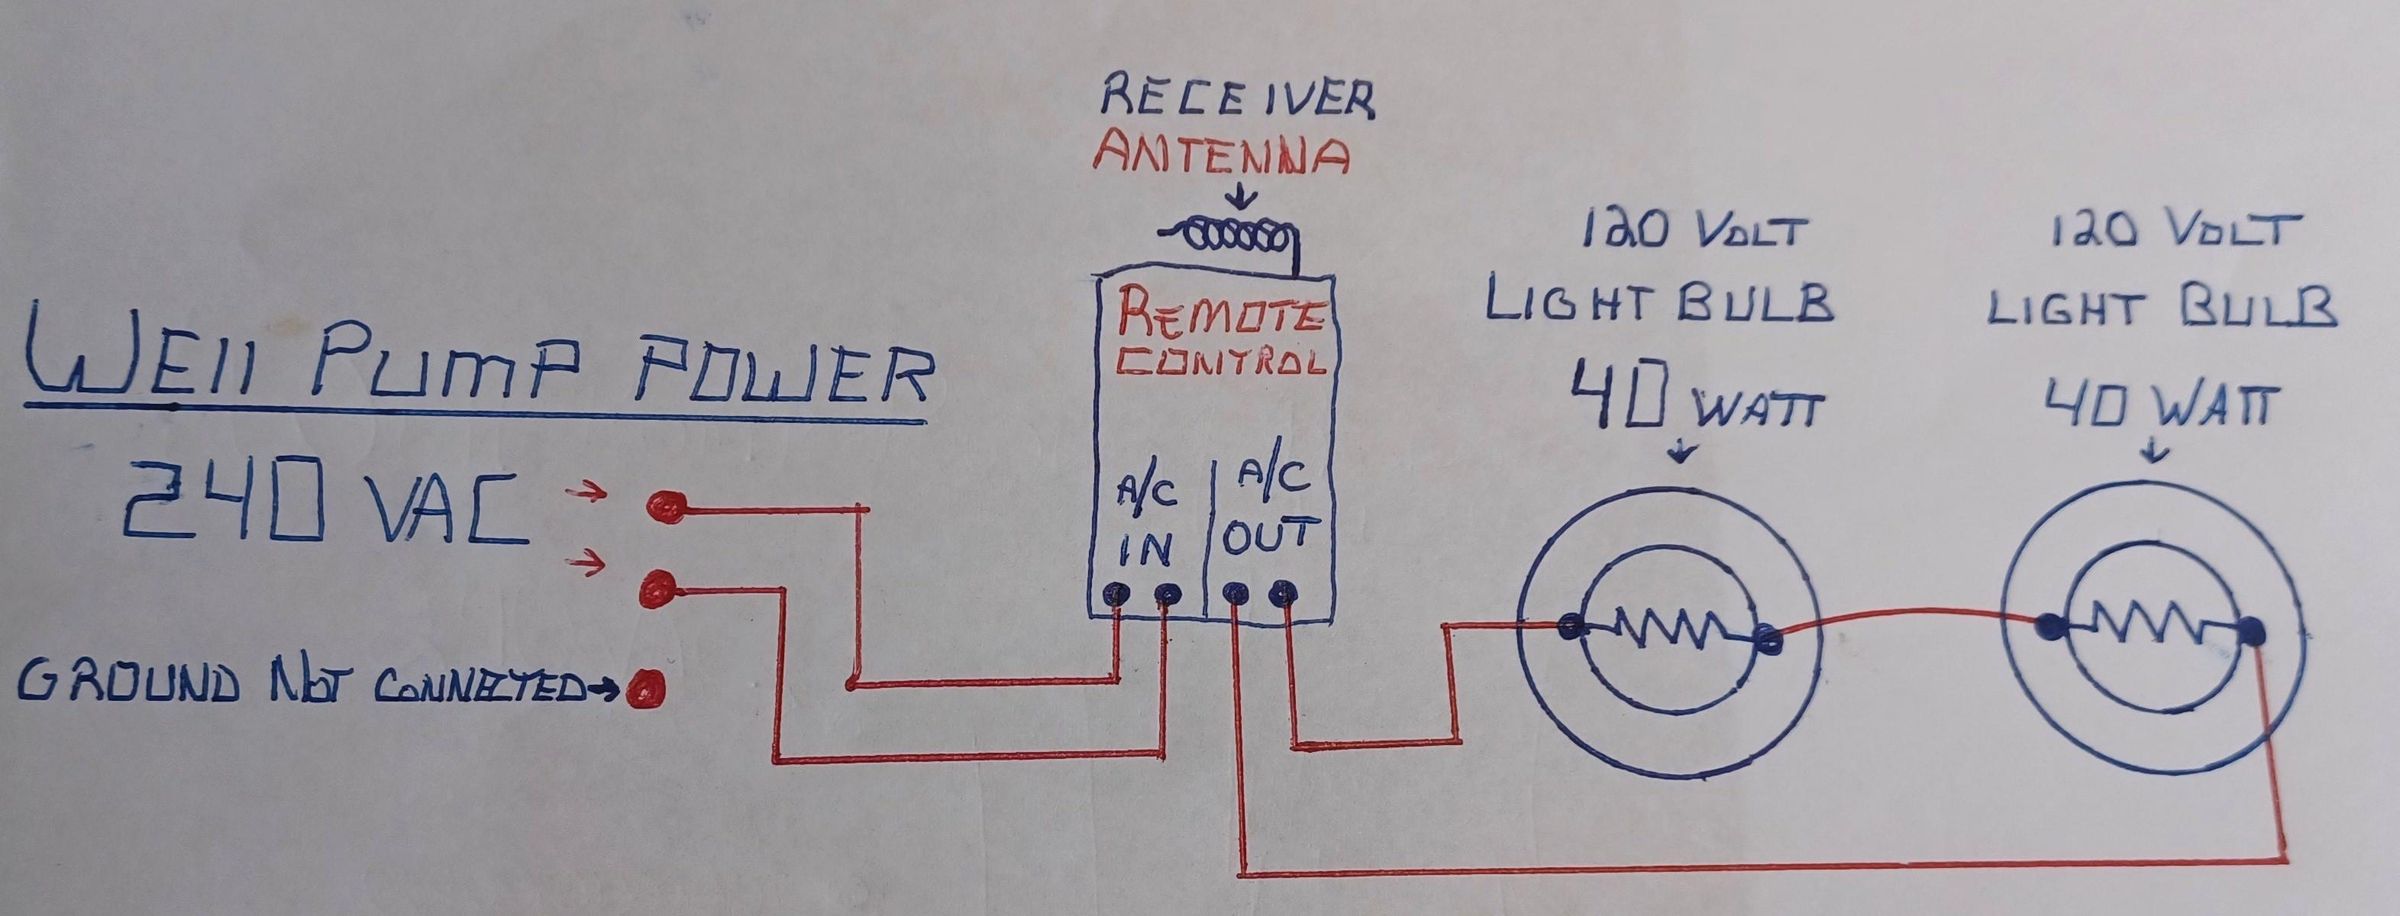 RECEIVER
ANTENNA
REMOTE
CONTROL
A/C
IN
A/C
OUT
WEll PUmP POWER
240 VAC
GROUND NOT CONNECTED
120 VOLT
LIGHT BULB
40 WATT
120 VOLT
LIGHT BULB
40 WATT